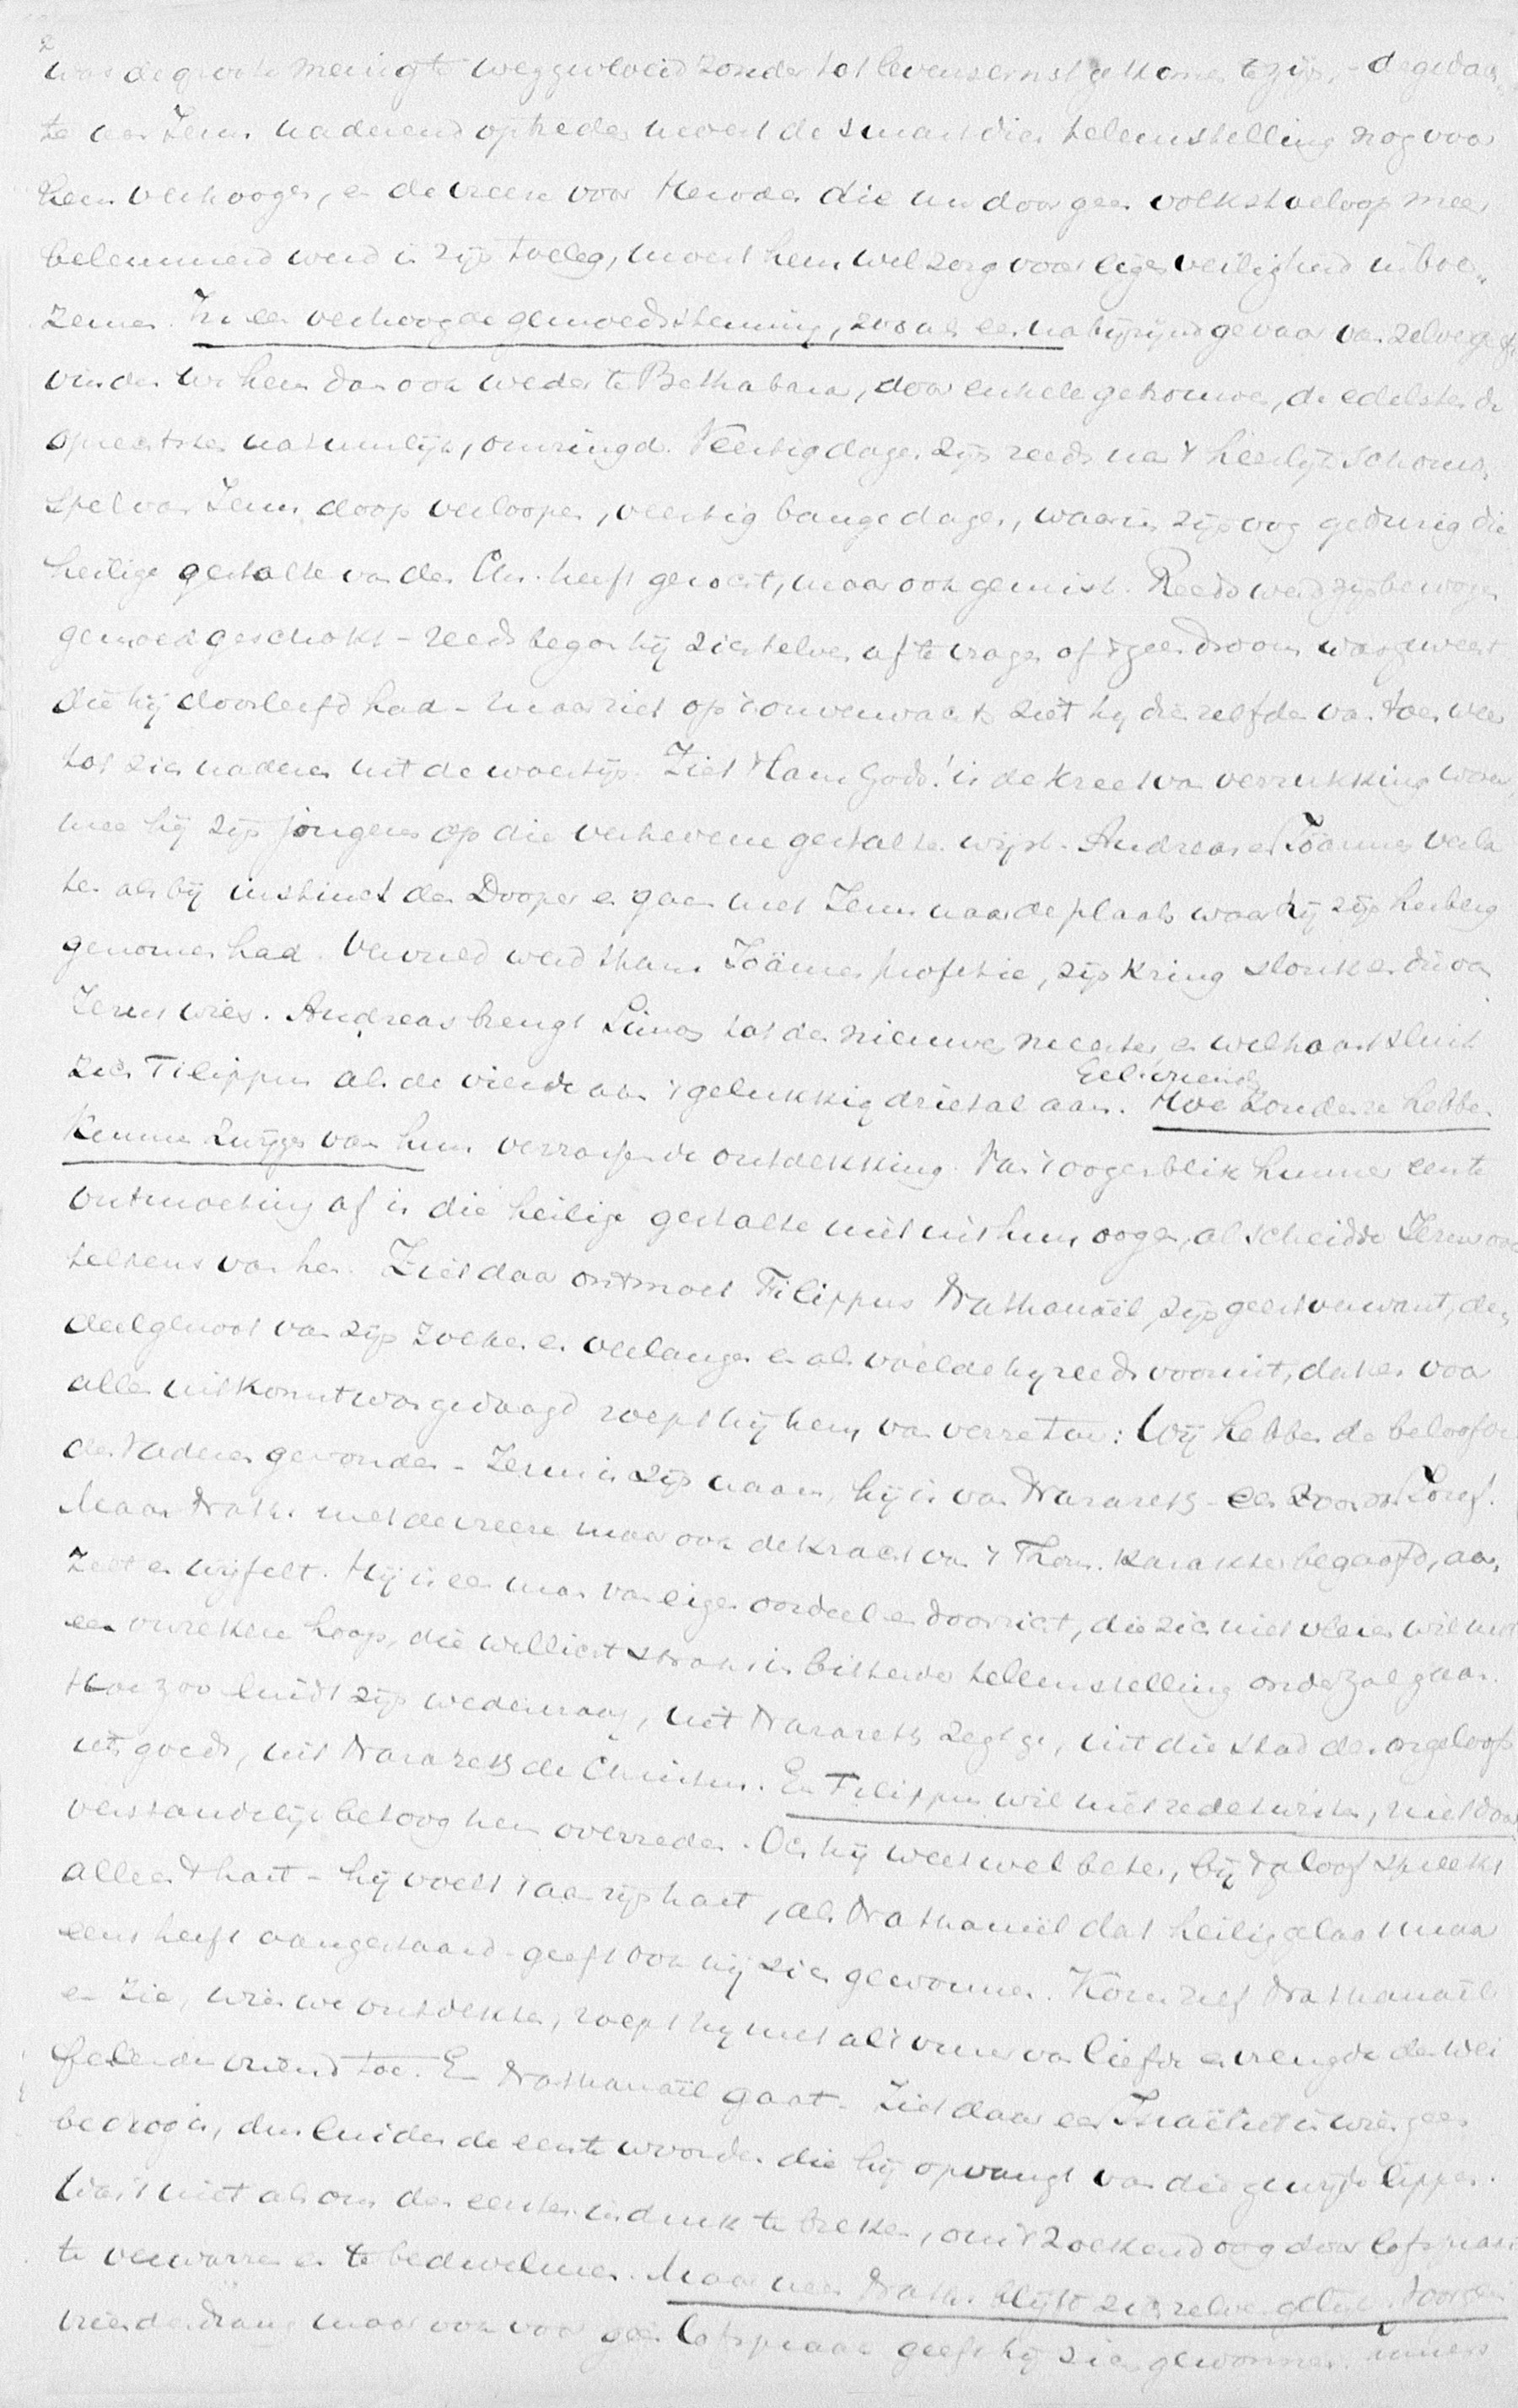 2
was de groote menigte weggevloeid zonder tot levensernst gekomen te zijn, - de gedach„
te aan Jezus naderend optreden moest de smart dier teleurstelling nog voor
hem verhoogen, en de vrees voor Herodes die nu door geen volkstoeloop meer
belemmerd werd in zijn toeleg, moest hem wel zorg voor eigen veiligheid inboe„
zemen. In een verhoogde gemoedsstemming, zooals een nabijzijnd gevaar van zelve geeft
vinden we hem dan ook weder te Bethabara, door enkele getrouwen, de edelsten de
oprechtsten natuurlijk, omringd. Veertig dagen zijn reeds na 't heerlijk schouw„
spel van Jezus doop verloopen, veertig bange dagen, waarin zijn oog gedurig die
heilige gestalte van den Chr. heeft gezocht, maar ook gemist. Reeds werd zijn bewogen
gemoed geschokt - reeds begon hij zich zelven af te vragen of 't geen droom was geweest
die hij doorleefd had - maar ziet op 't onverwachts ziet hij dien zelfden van toen weer
tot zich naderen uit de woestijn. Ziet 't Lam Gods! is de kreet van verrukking waar„
mee hij zijn jongeren op die verhevene gestalte wijst. Andreas en Joännes verla
ten als bij instinct den Dooper en gaan met Jezus naar de plaats waar hij zijn herberg
genomen had. Vervuld werd thans Joännes profetie, zijn kring slonk en die van
Jezus wies. Andreas brengt Simon tot den nieuwen meester en welhaast sluit
zich Filippus als de vierde aan 't gelukkig drietal aan. Hoe zouden ze hebben
Gel. vriend
kunnen zwijgen van hun verrassende ontdekking. Van 't oogenblik hunner eerste
ontmoeting af is die heilige gestalte niet uit hun oogen, al scheidde Jezus ook
telkens van hen. Ziet daar ontmoet Filippus Nathanaël, zijn geestverwant, den
deelgenoot van zijn zoeken en verlangen en als voelde hij reeds vooruit, dat er voor
allen uitkomst was gedaagd roept hij hem van verre toe: Wij hebben de beloofde
der vaderen gevonden - Jezus is zijn naam, hij is van Nazareth - een zoon van Jozef.
Maar Nath. met de vreeze maar ook de kracht van 't Thom. karakter begaafd, aar„
zelt en twijfelt. Hij is een man van eigen oordeel en doorzicht, die zich niet vleien wil met
een onzekere hoop, die wellicht straks in bittere teleurstelling onder zal gaan.
Hoe zoo luidt zijn wedervraag, uit Nazareth zegt ge, uit die stad des ongeloofs
iets goeds, uit Nazareth de Christus. En Filippus wil niet redetwisten, niet door
verstandelijk betoog hem overreden. Och hij weet wel beter, bij 't geloof spreekt
alleen 't hart - hij voelt 't aan zijn hart, als Nathanaël dat heilig gelaat maar
eens heeft aangestaard - geeft ook hij zich gewonnen. Kom zelf Nathanaël
en zie, wien we ontdekten, roept hij met al 't vuur van liefde en vreugde den twei
felenden vriend toe. En Nathanaël gaat. Ziet daar een Israëliet in wien geen
bedrog is, dus luiden de eerste woorden die hij opvangt van die gewijde lippen.
Was 't niet als om den eersten indruk te breken, om 't zoekend oog door lofspraak
te verwarren en te bedwelmen. Maar neen Nath. blijft zich zelven gelijk. Door geen
vriendendrang maar ook voor geen lofspraak geeft hij zich gewonnen. Immers